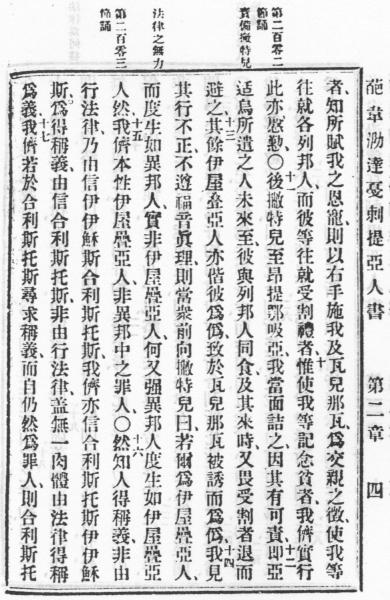 葩韋泐達戞剌提亞人書 第二章 四
第二百零二
節誦
責備撇特兒
法律之無力
第二百零三
節誦
者、知所賦我之恩寵、則以右手施我及瓦兒那瓦、為交親之徵、使我等
往就各列邦人、而彼等往就受割禮者、十惟使我等記念貧者、我儕實行
此亦慇懃〇十一後撇特兒至昂提鄂吸亞、我當面詰之、因其有可責、十二即亞
适烏所遣之人未來至、彼與列邦人同食、及其來時、又畏受割者、退而
避之、十三其餘伊屋疊亞人、亦偕彼為偽、致於瓦兒那瓦被誘而為偽、十四我見
其行不正不遵福音眞理、則當衆前向撇特兒曰、若爾為伊屋疊亞人、
而度生如異邦人、實非伊屋疊亞人、何又强異邦人度生如伊屋疊亞
人然、十五我儕本性伊屋疊亞人、非異邦中之罪人〇十六然知人得稱義、非由
行法律、乃由信伊伊穌斯合利斯托斯、我儕亦信合利斯托斯伊伊穌
斯、為得稱義、由信合利斯托斯、非由行法律、蓋無一肉體由法律得稱
為義、十七我儕若於合利斯托斯尋求稱義、而自仍然為罪人、則合利斯托